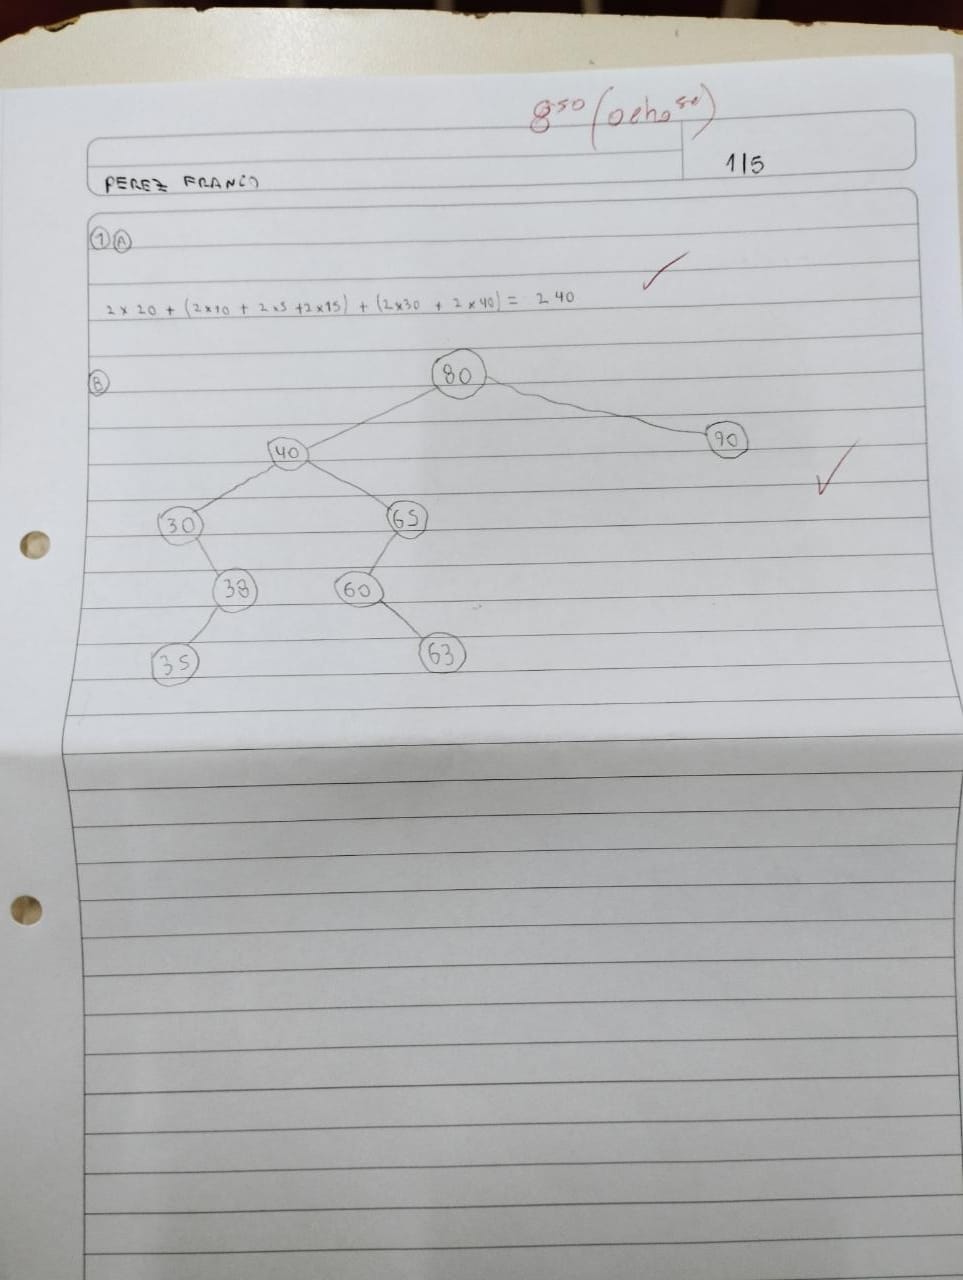 8⁵⁰ (ocho 50)
PEREZ FRANCO
1/5
1 A
2 x 20 + (2x10 + 2x5 + 2x15) + (2x30 + 2 x 40) = 240
B
80
40
90
30
65
38
60
35
63